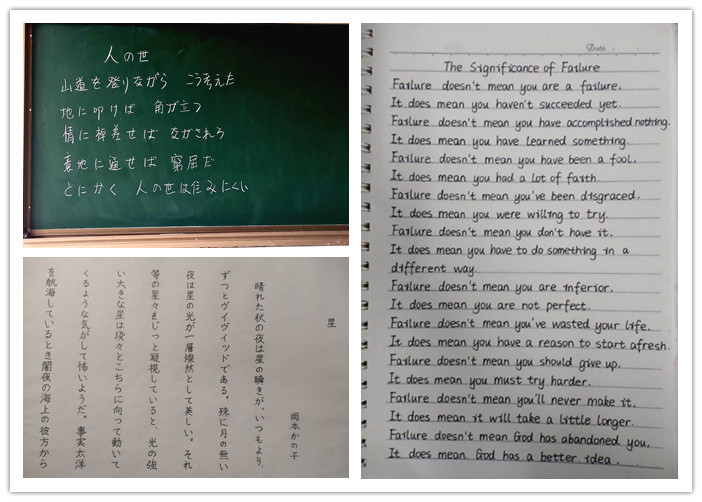 人の世
山道を登りながら こう考えた
地に叩けば 角が立つ
情に棹差せば ながされる
意地に通せば 窮屈だ
とにかく 人の世は住みにくい
星
岡本かの子
晴れた秋の夜は星の瞬きが、いつもより、
ずつとヴイヴイツドである。殊に月の無い
夜は星の光が一層燦然として美しい。それ
等の星々をじつと凝視していると、光の強
い大きな星は段々とこちらに向って動いて
くるような気がして怖いようだ。事実太洋
を航海しているとき闇夜の海上の彼方から
Date
The Significance of Failure
Failure doesn't mean you are a failure.
It does mean you haven't succeeded yet.
Failure doesn't mean you have accomplished nothing.
It does mean you have learned something.
Failure doesn't mean you have been a fool.
It does mean you had a lot of faith.
Failure doesn't mean you've been disgraced.
It does mean you were willing to try.
Failure doesn't mean you don't have it.
It does mean you have to do something in a
different way.
Failure doesn't mean you are inferior.
It does mean you are not perfect.
Failure doesn't mean you've wasted your life.
It does mean you have a reason to start afresh.
Failure doesn't mean you should give up.
It does mean you must try harder.
Failure doesn't mean you'll never make it.
It does mean it will take a little longer.
Failure doesn't mean God has abandoned you.
It does mean God has a better idea.